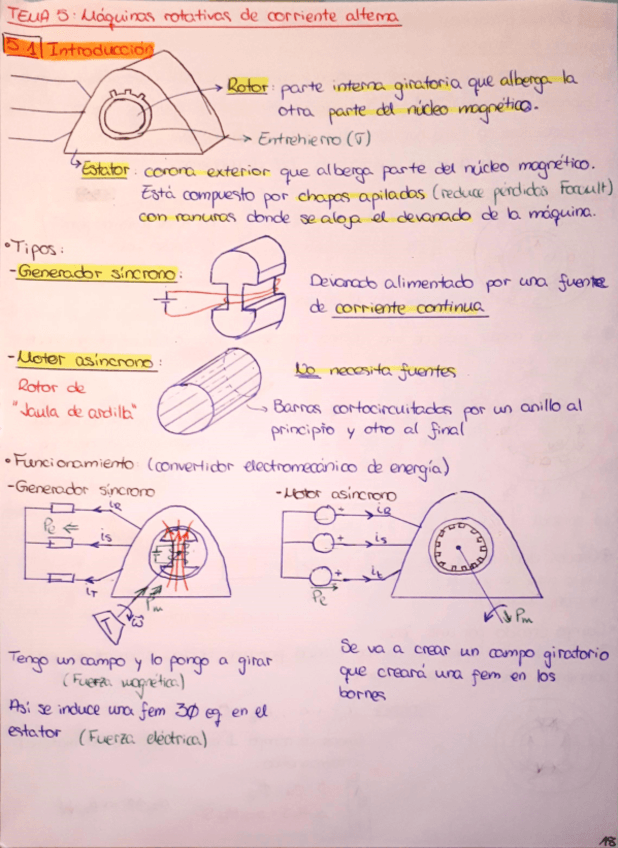 TEMA 5: Máquinas rotativas de corriente alterna
5.1 Introducción
Rotor: parte interna giratoria que alberga la
otra parte del núcleo magnético.
Entrehierro (σ)
Estator: corona exterior que alberga parte del núcleo magnético.
Está compuesto por chapas apiladas (reduce pérdidas Foucult)
con ranuras donde se aloja el devanado de la máquina.
• Tipos:
- Generador síncrono:
Devanado alimentado por una fuente
de corriente continua
- Motor asíncrono:
No necesita fuentes
Rotor de
"Jaula de ardilla"
Barras cortocircuitadas por un anillo al
principio y otro al final
• Funcionamiento (convertidor electromecánico de energía)
- Generador síncrono
- Motor asíncrono
iR
iR
Pe
iS
iS
iT
it
Pe
Pm
T
ω
Pm
Tengo un campo y lo pongo a girar
(Fuerza magnética)
Así se induce una fem 3Ø eq en el
estator (Fuerza eléctrica)
Se va a crear un campo giratorio
que creará una fem en los
bornes
18